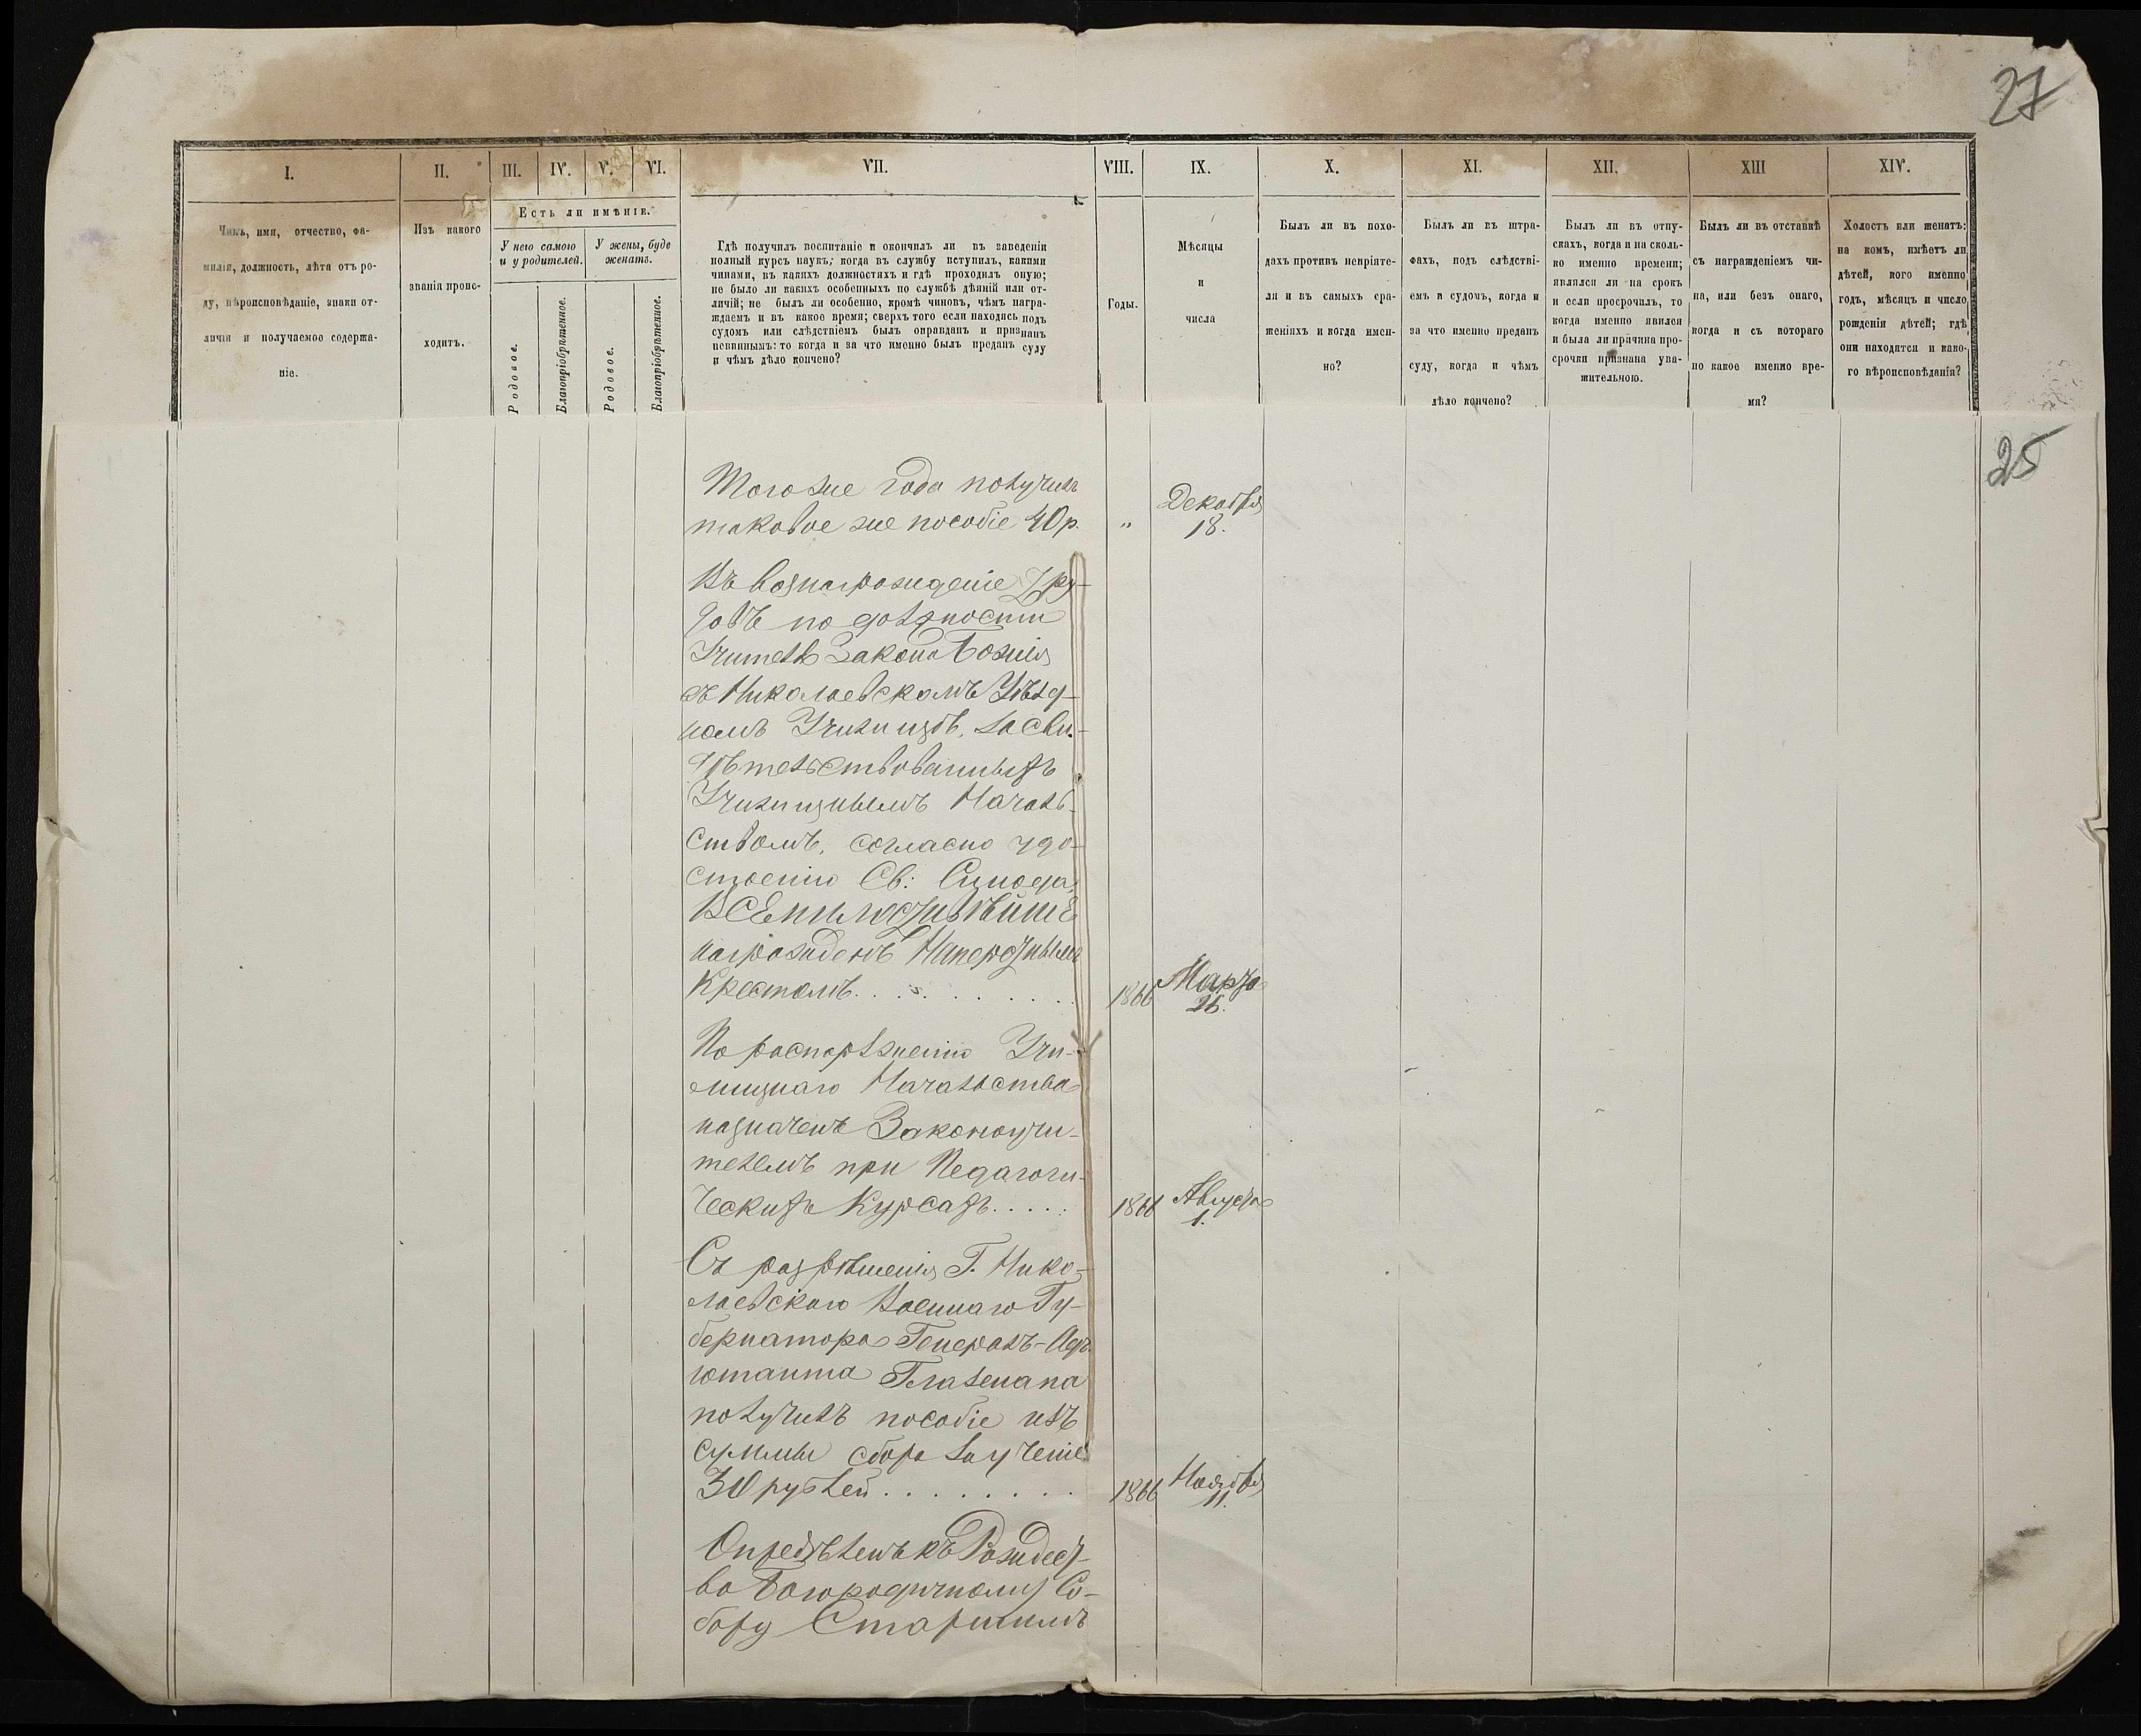 27
I.
II.
III.
IV.
V.
VI.
VII.
VIII.
IX.
X.
XI.
XII.
XIII
XIV.
Чинъ, имя, отчество, фа-
милія, должность, лѣта отъ ро-
ду, вѣроисповѣданіе, знаки от-
личія и получаемое содержа-
ніе.
Изъ какого
званія проис-
ходитъ.
Есть ли имѣніе.
У него самого
и у родителей.
У жены, буде
женатъ.
Родовое.
Благопріобрѣтенное.
Родовое.
Благопріобрѣтенное.
Гдѣ получилъ воспитаніе и окончилъ ли въ заведеніи
полный курсъ наукъ; когда въ службу вступилъ, какими
чинами, въ какихъ должностяхъ и гдѣ проходилъ оную;
не было ли какихъ особенныхъ по службѣ дѣяній или от-
личій; не былъ ли особенно, кромѣ чиновъ, чѣмъ награ-
ждаемъ и въ какое время; сверхъ того если находясь подъ
судомъ или слѣдствіемъ былъ оправданъ и признанъ
невиннымъ: то когда и за что именно былъ преданъ суду
и чѣмъ дѣло кончено?
Годы.
Мѣсяцы
и
числа
Былъ ли въ похо-
дахъ противъ непріяте-
ля и въ самыхъ сра-
женіяхъ и когда имен-
но?
Былъ ли въ штра-
фахъ, подъ слѣдстві-
емъ и судомъ, когда и
за что именно преданъ
суду, когда и чѣмъ
дѣло кончено?
Былъ ли въ отпу-
скахъ, когда и на сколь-
ко именно времени;
являлся ли на срокъ
и если просрочилъ, то
когда именно явился
и была ли причина про-
срочки признана ува-
жительною.
Былъ ли въ отставкѣ
съ награжденіемъ чи-
на, или безъ онаго,
когда и съ котораго
по какое именно вре-
мя?
Холостъ или женатъ:
на комъ, имѣетъ ли
дѣтей, кого именно
годъ, мѣсяцъ и число
рожденія дѣтей; гдѣ
они находятся и како-
го вѣроисповѣданія?
25
Тогоже года получилъ
таковое же пособіе 40 р. " Декабря 18.
Въ вознагражденіе тру-
довъ по должности
Учителя Закона Божія
въ Николаевскомъ Уѣзд-
номъ Училищѣ, засви-
дѣтельствованныхъ
Училищнымъ Началь-
ствомъ, согласно удо-
стоенію Св: Синода,
ВСЕМИЛОСТИВѢЙШЕ
награжденъ Наперстнымъ
Крестомъ. 1866 Марта 26.
По распоряженію Учи-
лищнаго Начальства
назначенъ Законоучи-
телемъ при Педагоги-
ческихъ Курсахъ..... 1866 Августа 1.
Съ разрѣшенія Г. Нико-
лаевскаго Военнаго Гу-
бернатора Генералъ-Адъ-
ютанта Глазенапа
получилъ пособіе изъ
суммы сбора за ученіе
30 рублей........ 1866 Ноября 11.
Опредѣленъ къ Рождест-
во Богородичному Со-
бору Старшимъ